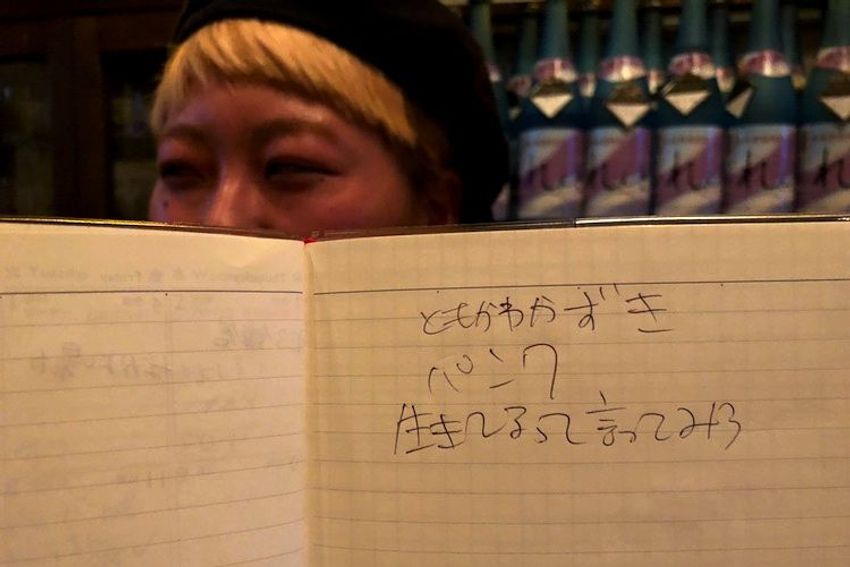 ともかわかずき
パンク
生きてるって言ってみろ